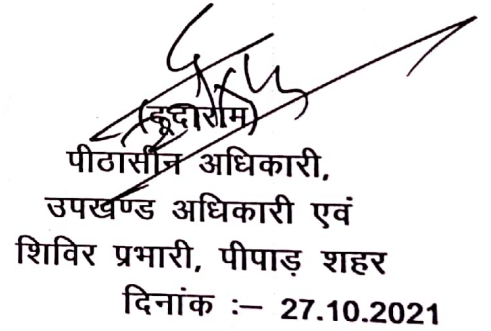 (डूदाराम)
पीठासीन अधिकारी,
उपखण्ड अधिकारी एवं
शिविर प्रभारी, पीपाड़ शहर
दिनांक :– 27.10.2021